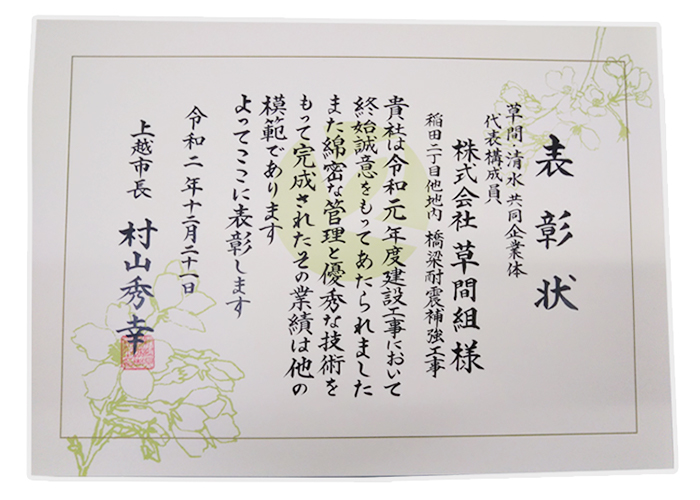 表彰状
草間・清水 共同企業体
代表構成員
株式会社 草間組 様
稲田二丁目他地内 橋梁耐震補強工事
貴社は令和元年度建設工事において
終始誠意をもってあたられました
また綿密な管理と優秀な技術を
もって完成されたその業績は他の
模範であります
よってここに表彰します
令和二年十二月二十一日
上越市長 村山秀幸